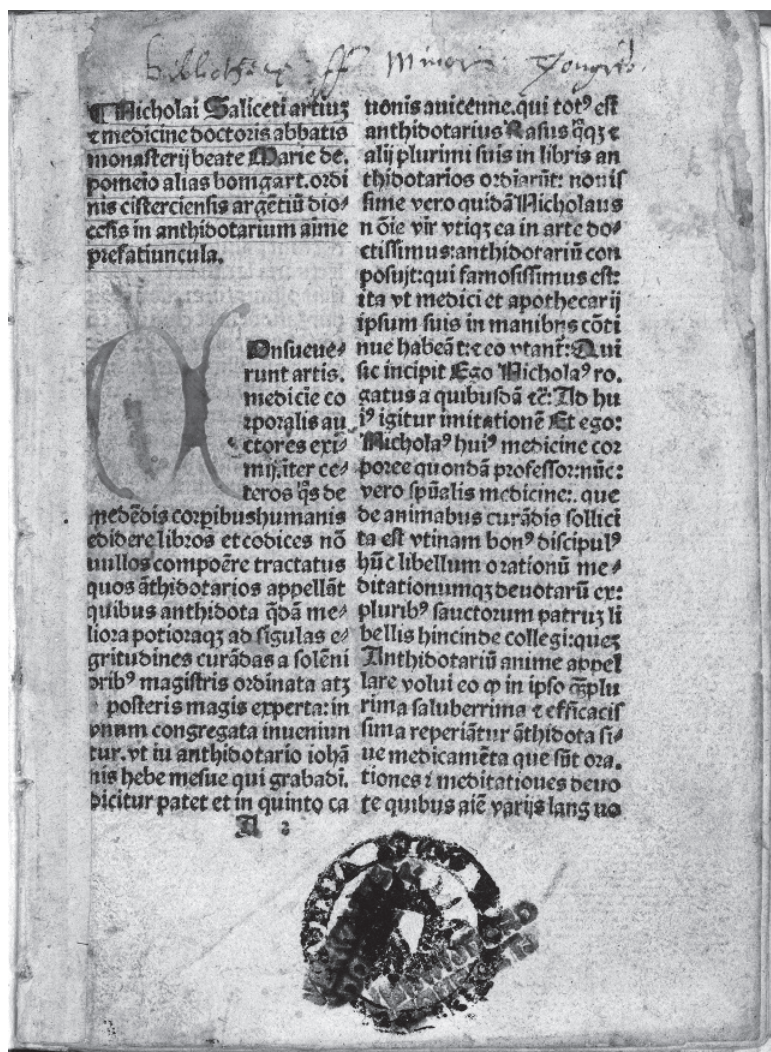 Bibliothecæ ff Minor Tongris.
¶ Nicholai Saliceti artiuꝫ
⁊ medicine doctoris abbatis
monasterij beate Marie de.
pomeio alias bomgart.ordi
nis cisterciensis argētiū dio⸗
cesis in anthidotarium aīme
prefatiuncula.
COnsueue⸗
runt artis.
medicīe co
rporalis au
ctores exi⸗
mij.īter ce⸗
teros q̄s de
medēdis corpibushumanis
edidere libros et codices nō
uullos compoēre tractatus
quos āthidotarios appellāt
quibus anthidota q̄dā me⸗
liora potioraqꝫ ad sīgulas e⸗
gritudines curādas a solēni
oribꝰ magistris ordinata atꝫ
posteris magis experta: in
vnum congregata inueniun
tur. vt iu anthidotario iohā
nis hebe mesue qui grabadī.
dicitur patet et in quinto ca
A 2
uonis auicenne.qui totꝰ est
anthidotarius Rasus q̄qꝫ ⁊
alij plurimi suis in libris an
thidotarios ordiarūt: nouis
sime vero quidā Nicholaus
n ōīe vir vtiqꝫ ea in arte do⸗
ctissimus:anthidotariū con
posujt:qui famosissimus est:
ita vt medici et apothecarij
ipsum suis in manibus cōti
nue habeāt:⁊ eo vtant: Qui
sic incipit Ego Nicholaꝰ ro.
gatus a quibusdā ⁊c̄: Ad hu
iꝰ igitur imitationē Et ego:
Nicholaꝰ huiꝰ medicine cor
poree quondā professor:nūc:
vero spūalis medicine:. que
de animabus curādis sollici
ta est vtinam bonꝰ discipulꝰ
hūc libellum orationū me⸗
ditationumqꝫ deuotarū ex:
pluribꝰ sauctorum patruꝫ li
bellis hincinde collegi:queꝫ
Anthidotariū anime appel
lare volui eo ꝙ in ipso q̄ꝫplu
rima saluberrima ⁊ efficacis
sima reperiātur āthidota si⸗
ue medicamēta que sūt ora.
tiones ⁊ meditatioues deuo
te quibus aīe varijs lang uo